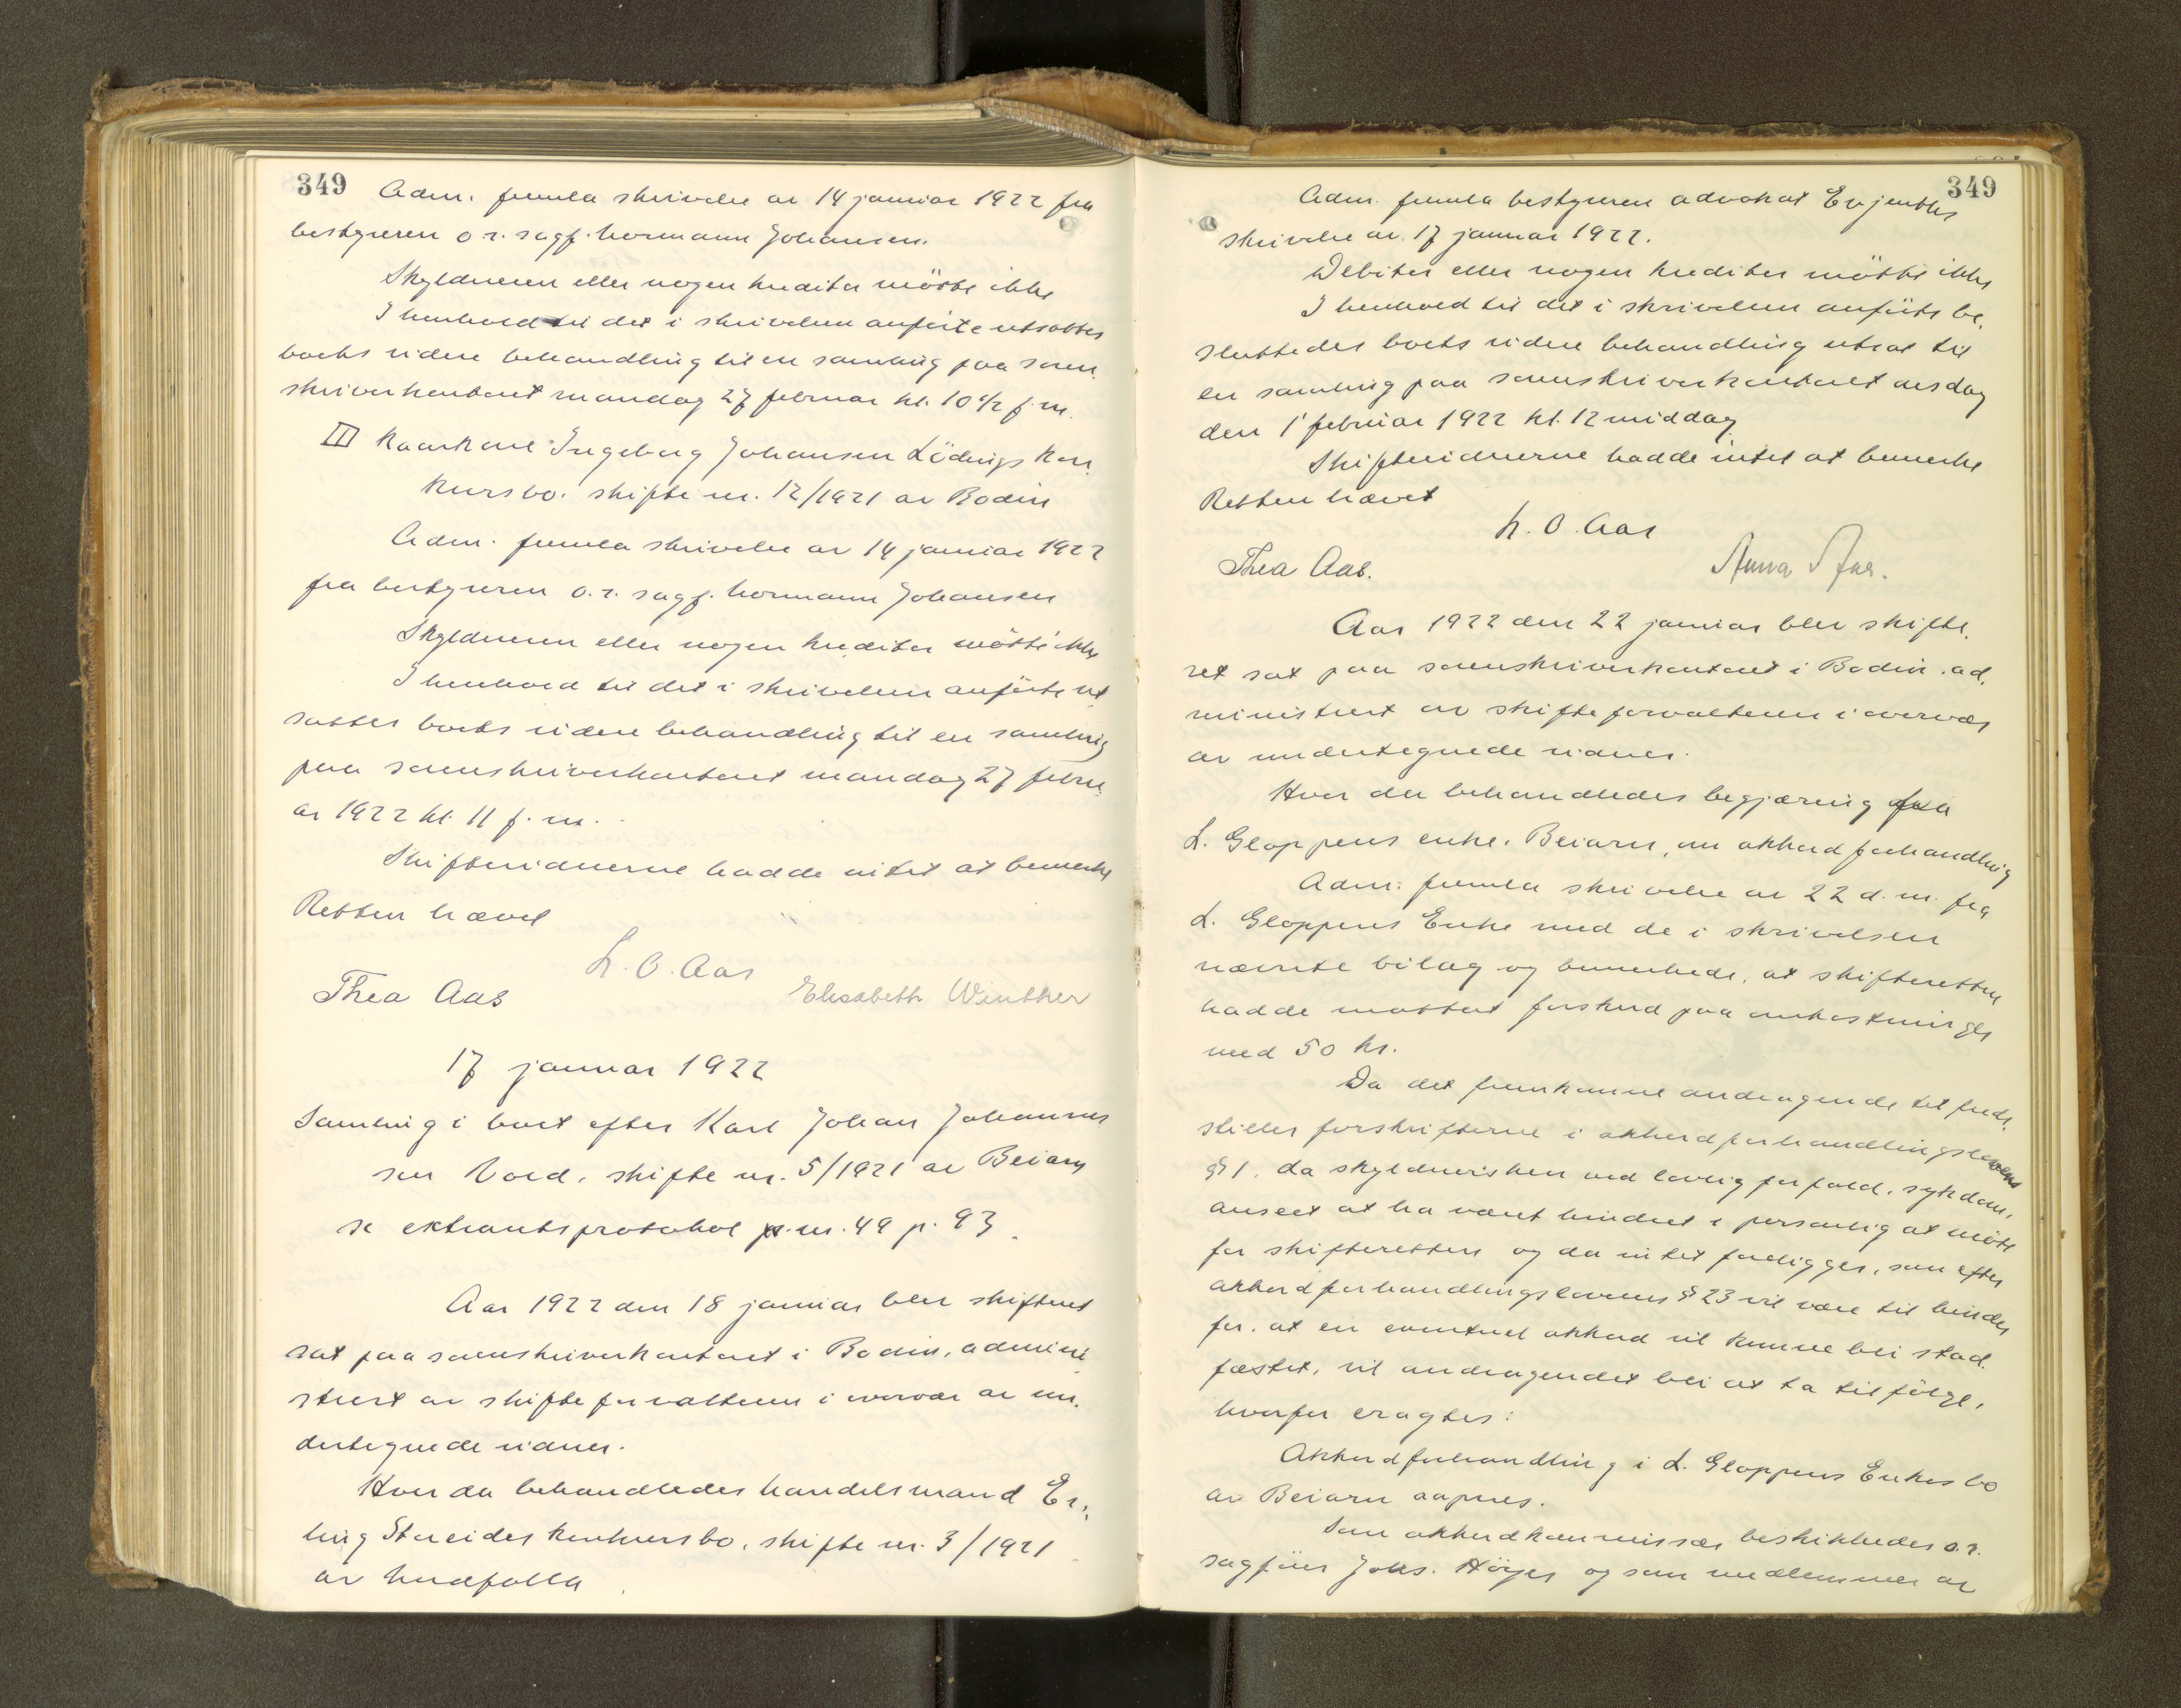 349
Adm. fremla skrivelse av 14 januar 1922 fra
bestyreren o.r. sagf. Hermann Johansen.
Skyldneren eller nogen kreditor mötte ikke
I henhold til det i skrivelsen anförte utsattes
boets videre behandling til en samling paa soren
skriverkontoret mandag 27 februar kl. 10 1/2 f.m.
III Kaarkone Ingeborg Johansen Lödings kon
kursbo. skifte nr. 12/1921 av Bodin
Adm. fremla skrivelse av 14 januar 1922
fra bestyreren o.r. sagf. Hermann Johansen
Skyldneren eller nogen kreditor mötte ikke
I henhold til det i skrivelsen anförte ut
sattes boets videre behandling til en samling
paa sorenskriverkontoret mandag 27 febru
ar 1922 kl. 11 f.m.
Skiftevidnerne hadde intet at bemerke
Retten hævet
L.O. Aas
Thea Aas Elisabeth Winther
17 januar 1922
Samling i boet efter Karl Johan Johannes
sen Vold, skifte nr. 5/1921 av Beiarn
se ekstraretsprotokol nr. 49 p. 93.
Aar 1922 den 18 januar blev skifteret
sat paa sorenskriverkontoret i Bodin, admini
strert av skifteforvalteren i overvær av un.
dertegnede vidner.
Hvor da behandledes handelsmand Er.
ling Storeides konkursbo, skifte nr. 3/1921
av
349
Adm. fremla bestyreren advokat Evjenths
skrivelse av 17 januar 1922.
Debitor eller nogen kreditor mötte ikke
I henhold til det i skrivelsen anförte be.
sluttedes boets videre behandling utsat til
en samling paa sorenskriverkontoret onsdag
den 1 februar 1922 kl. 12 middag
Skiftevidnerne hadde intet at bemerke
Retten hævet
L.O. Aas
Thea Aas. Anna
Aar 1922 den 22 januar blev skifte.
ret sat paa sorenskriverkontoret i Bodin. ad.
ministrert av skifteforvalteren i overvær
av undertegnede vidner.
Hvor der behandledes begjæring fra
L. Gloppens enke, Beiarn, om akkordforhandling
Adm. fremla skrivelse av 22 d.m. fra
L. Gloppens Enke med de i skrivelsen
nævnte bilag og bemerkede, at skifteretten
hadde mottat forskud paa omkostninger
med 50 kr.
Da det fremkomne andragende tilfreds.
stiller forskrifterne i akkordforhandlingslovens
§ 1, da skyldnersken ved lovlig forfald, sykdom,
ansees at ha været hindret i personlig at möte
for skifteretten og da intet foreligger, som efter
akkordforhandlingslovens § 23 vil være til hinder
for, at en eventuel akkord vil kunne bli stad.
fæstet, vil andragendet bli at ta tilfölge,
hvorfor eragtes:
Akkordforhandling i L. Gloppens Enkes bo
av Beiarn aapnes.
Som akkordkommissær beskikkedes o.r.
sagförer Johs. Höyer og som medlemmer av